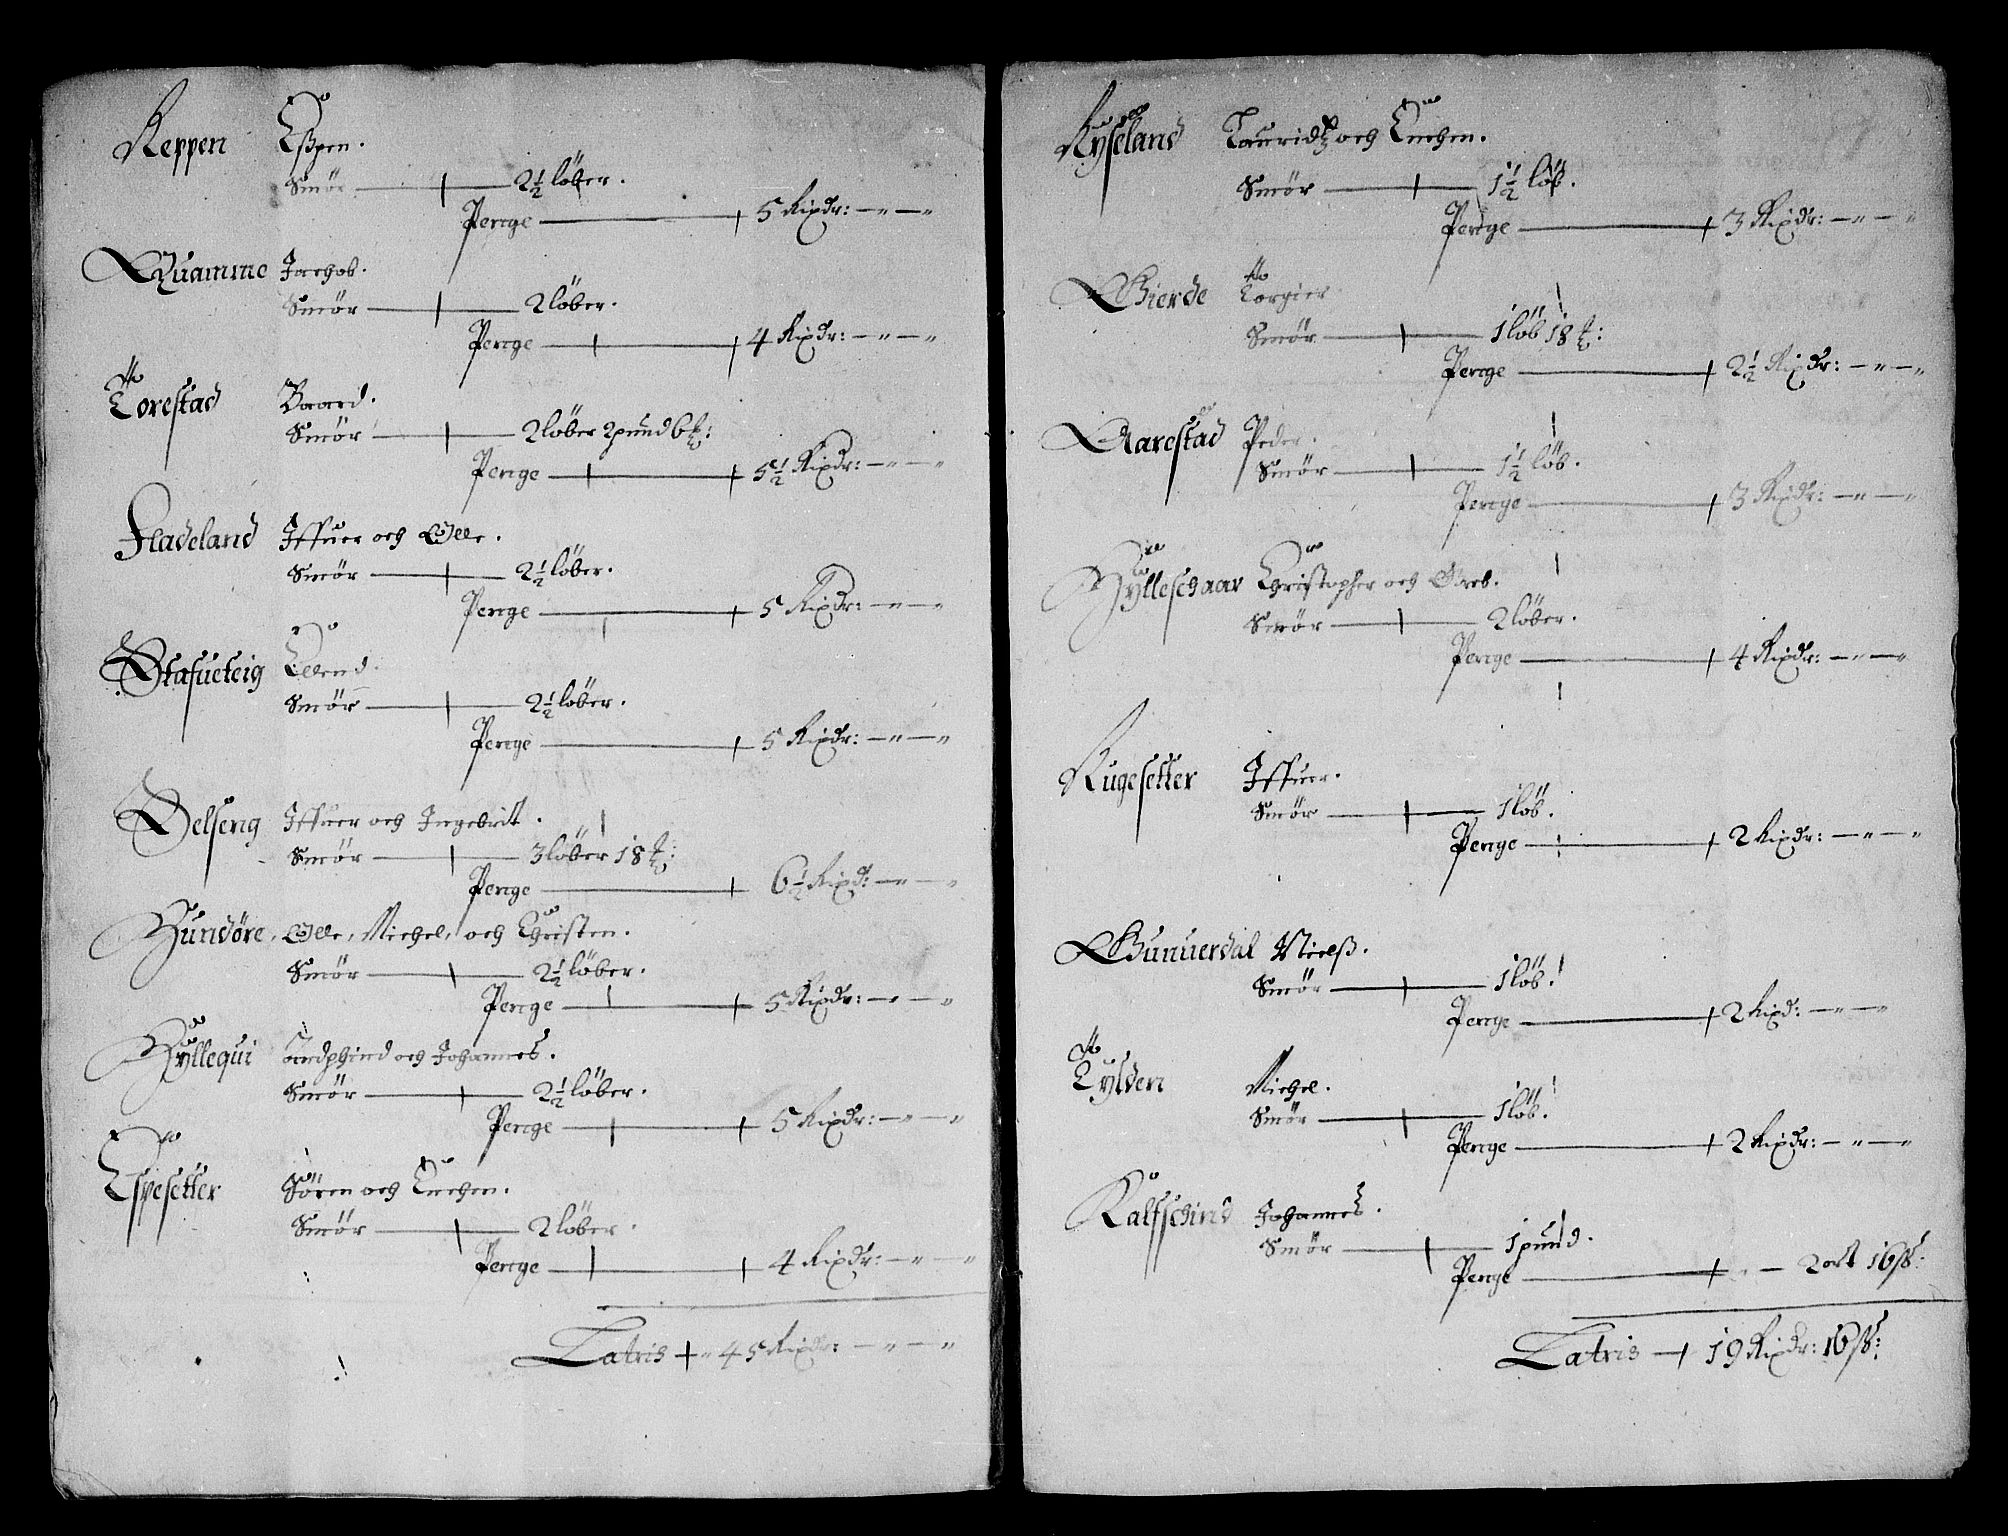 Keppen Eßpen.
Smör 2½ löber.
Penge 5 Rixdr:
Quamme Jachob.
Smör 2 löber.
Penge 4 Rixdr:
Torestad Baard.
Smör 2 löber 2 pund 6 ℔:
Penge 5½ Rixdr:
Fladeland Iffuer och Olle.
Smör 2½ löber.
Penge 5 Rixdr:
Stafueteig Ellend.
Smör 2½ löber.
Penge 5 Rixdr:
Oelseng Iffuer och Ingebrit.
Smör 3 löber 18 ℔:
Penge 6½ Rixd:
Hundöre, Olle, Michel, och Christen.
Smör 2½ löber.
Penge 5 Rixdr:
Hyllequi Andphind och Johannes.
Smör 2½ löber.
Penge 5 Rixdr:
Espesetter Sören och Enchen.
Smör 2 löber.
Penge 4 Rixdr:
Latris 45 Rixdr:
Kyseland Lauridtz och Enchen.
Smör 1½ löb.
Penge 3 Rixdr:
Gierde Torgier
Smör 1 löb 18 ℔:
Penge 2½ Rixdr:
Aarestad Peder.
Smör 1½ löb.
Penge 3 Rixdr:
Hylleschaar Christopher och
Smör 2 löber.
Penge 4 Rixdr:
Rugesetter Iffuer.
Smör 1 löb.
Penge 2 Rixdr:
Gunuerdal Nielß.
Smör 1 löb.
Penge 2 Rixd:
Tylden Michel.
Smör 1 löb.
Penge 2 Rixdr:
Kalfschind Johannes.
Smör 1 pund.
Penge 2 ort 16 ß:
Latris 19 Rixdr: 16 ß: